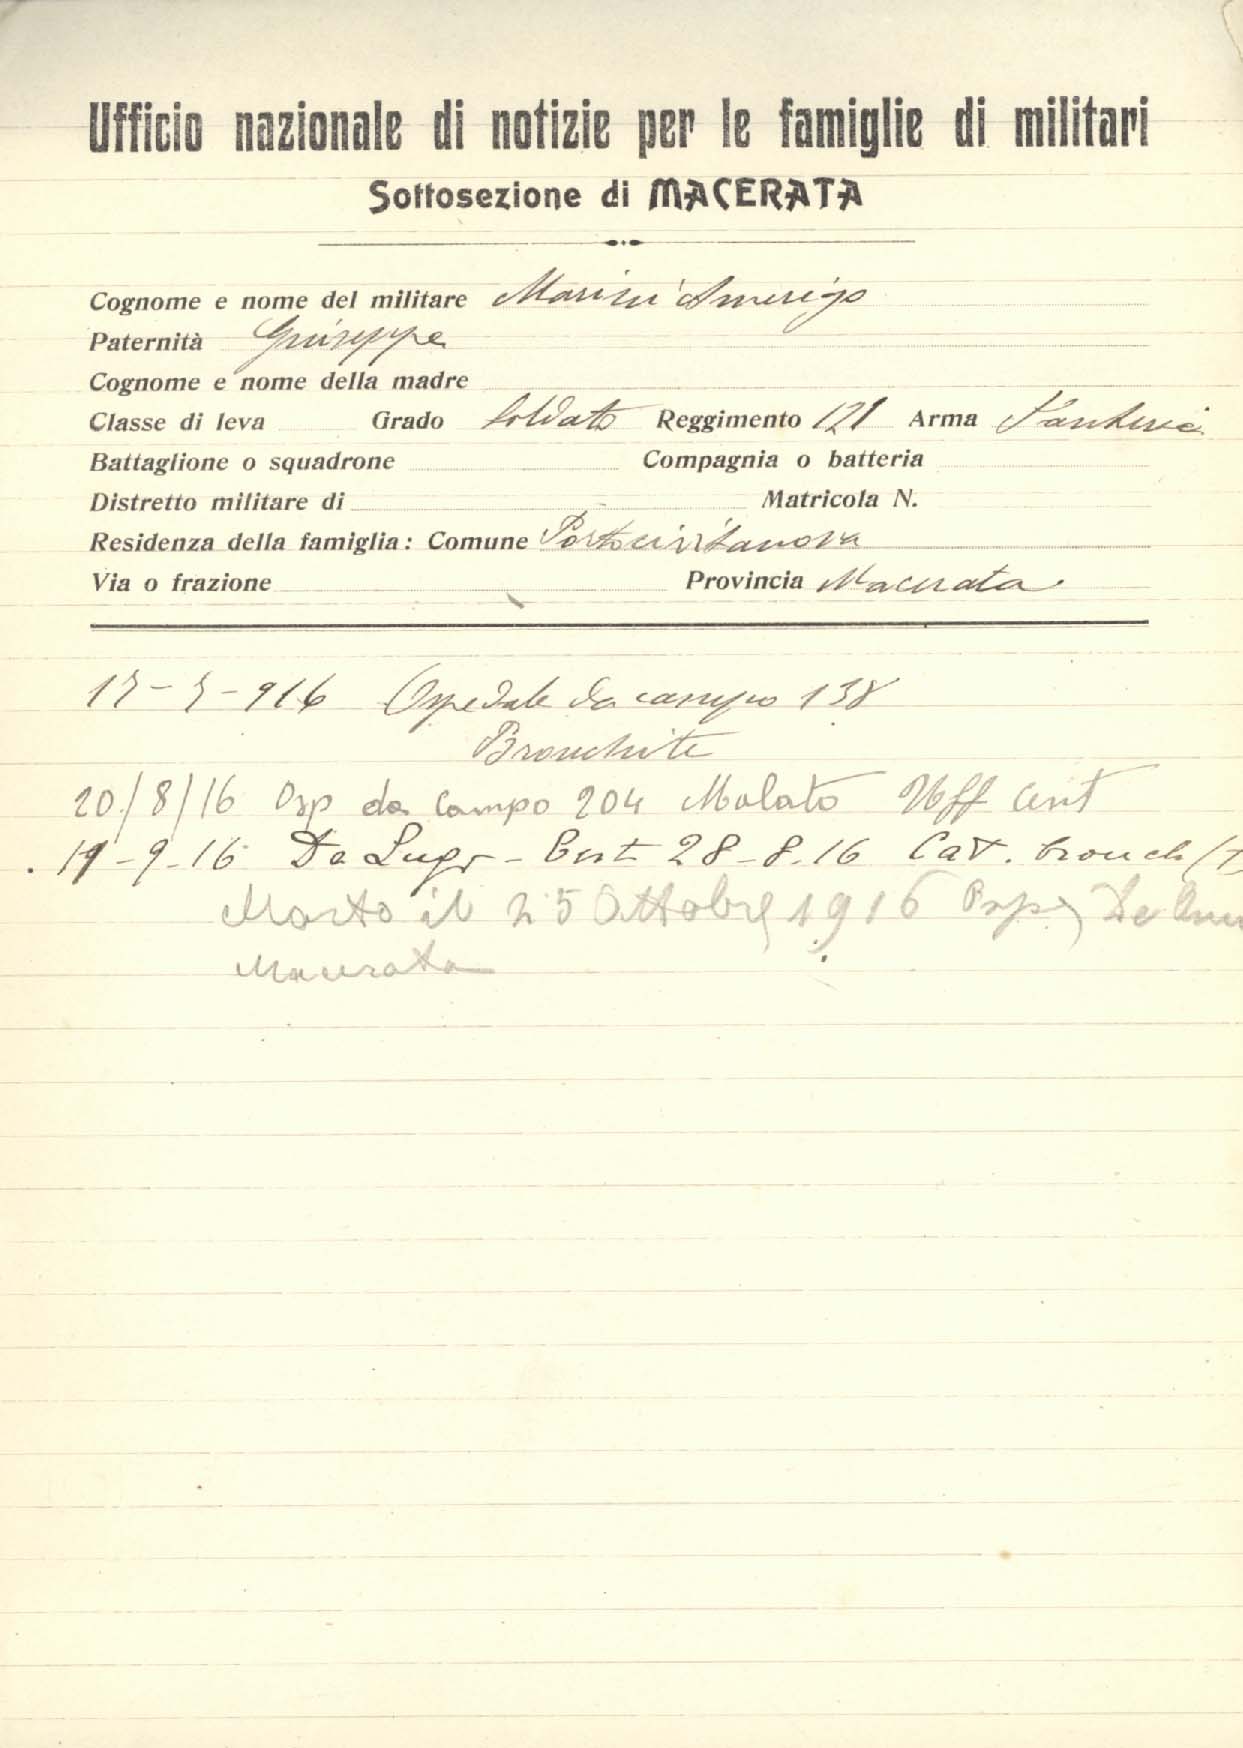 Ufficio nazionale di notizie per le famiglie di militari
Sottosezione di MACERATA
Cognome e nome del militare Marini Amerigo
Paternità Giuseppe
Cognome e nome della madre
Classe di leva Grado Soldato Reggimento 121 Arma Fanteria
Battaglione o squadrone Compagnia o batteria
Distretto militare di Matricola N.
Residenza della famiglia: Comune Portocivitanova
Via o frazione Provincia Macerata
916 Ospedale da campo 138
Bronchite
20/8/16 Osp da campo 204 Malato Uff Cent
19-9-16 Da Lugo - 28-8.16 Cat. bronch
Morto il 25 Ottobre 1916 Osp.
Macerata